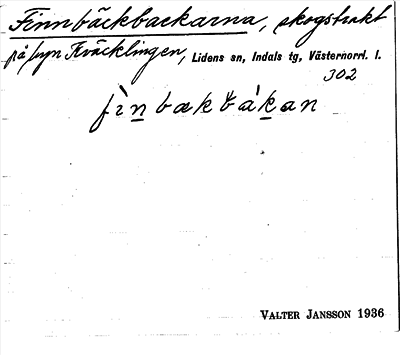 Finnbäckbackarna, skogstrakt
på byn Kväcklingen, Lidens sn, Indals tg, Västernorrl. l.
302
fi̇̀n̲bækbàk̲an
VALTER JANSSON 1936